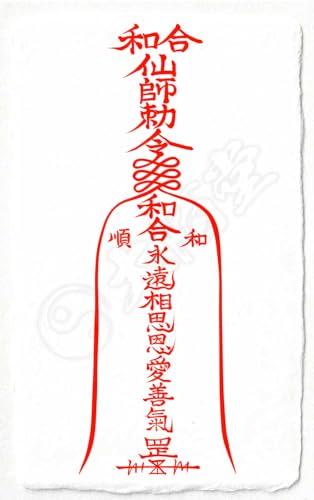 和合
仙師勅令
和合永遠相思恩愛善氣罡
順 和